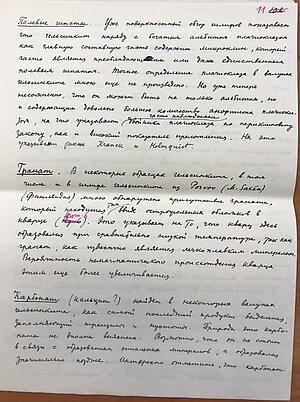 11
Полевые шпаты. Уже поверхностный обзор шлифов показывает
что гельсинкит наряду с богатым альбитом плагиоклаза
как главную составную часть содержит микроклин, который
часто является преобладающим или даже единственным
полевым шпатом. Точное определение плагиоклаза в валунах
гельсинкита мною еще не произведено. Но уже теперь
несомненно, что он может быть не только альбитом, но
и содержащим довольно большое количество анортита плагиокла-
зом, на это указывают двойники плагиоклаза по периклиновому
закону, как и высокий показатель преломления. На это
указывают также Кранск и Holmquist.
Гранат. В некоторых образцах гельсинкита, в том
числе и в шлифе гельсинкита из Porvoo (M. Saksela)
(Финляндия) мною обнаружено присутствие граната,
который находится в виде остроугольных обломков в
кварце (фот. ). Это указывает на то, что кварц здесь
образовался при сравнительно низкой температуре, так как
гранат, как известно является легкоплавким минералом.
Вероятность немагматического происхождения кварца
этим еще более увеличивается.
Карбонат (кальцит?) найден в некоторых валунах
гельсинкита, как самый последний продукт выделения,
заполняющий трещины и пустоты. Природа это карбо-
ната не вполне выяснена. Возможно, что он не стоит
в связи с образованием остальных минералов, а образовался
значительно позднее. Интересно отметить, что карбонат